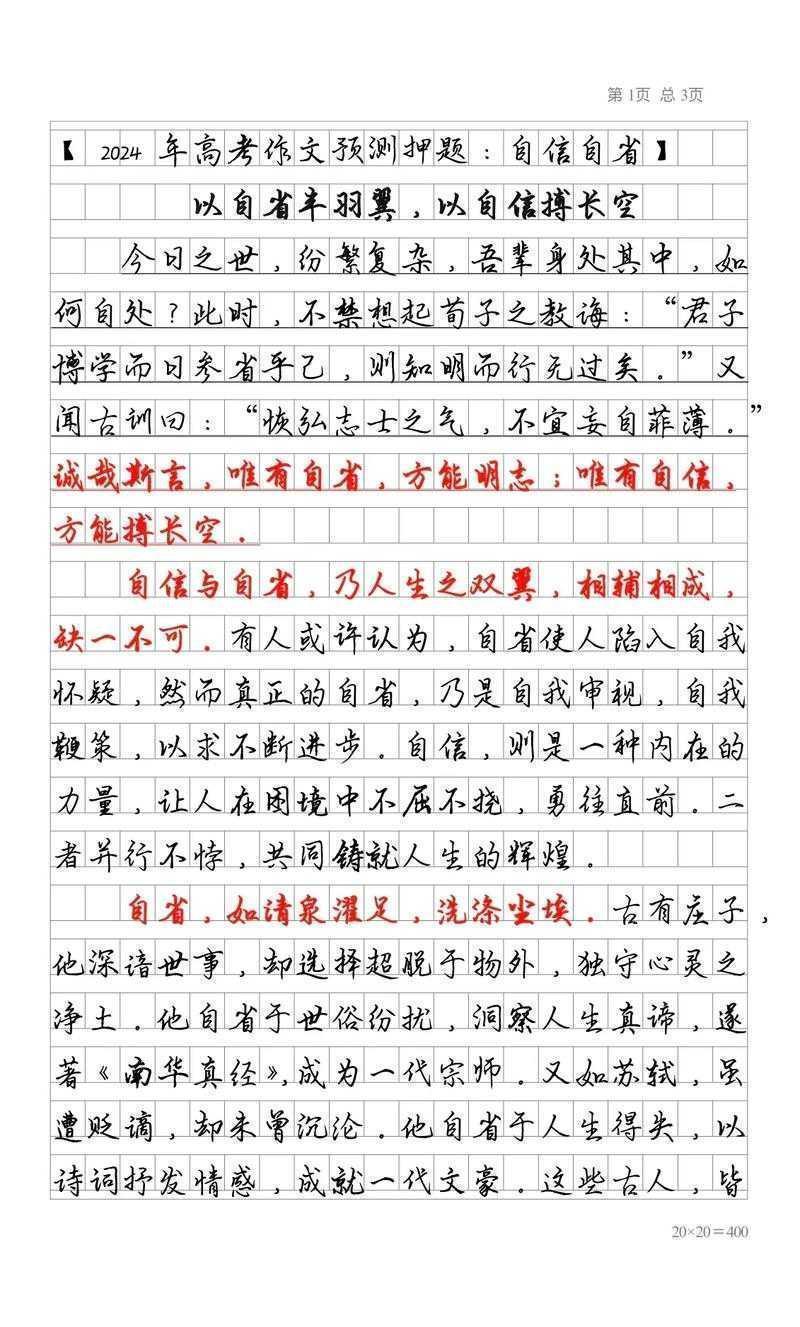 第1页 总3页
【 2024 年高考作文预测押题:自信自省】
以自省丰羽翼,以自信搏长空
今日之世,纷繁复杂,吾辈身处其中,如
何自处?此时,不禁想起荀子之教诲:“君子
博学而日参省乎己,则知明而行无过矣.”又
闻古训曰:“恢弘志士之气,不宜妄自菲薄.”
诚哉斯言,唯有自省,方能明志;唯有自信,
方能搏长空.
自信与自省,乃人生之双翼,相辅相成,
缺一不可.有人或许认为,自省使人陷入自我
怀疑,然而真正的自省,乃是自我审视,自我
鞭策,以求不断进步.自信,则是一种内在的
力量,让人在困境中不屈不挠,勇往直前.二
者并行不悖,共同铸就人生的辉煌。
自省,如清泉濯足,洗涤尘埃.古有庄子,
他深谙世事,却选择超脱于物外,独守心灵之
净土.他自省于世俗纷扰,洞察人生真谛,遂
著《南华真经》,成为一代宗师.又如苏轼,虽
遭贬谪,却未曾沉沦.他自省于人生得失,以
诗词抒发情感,成就一代文豪.这些古人,皆
20×20=400